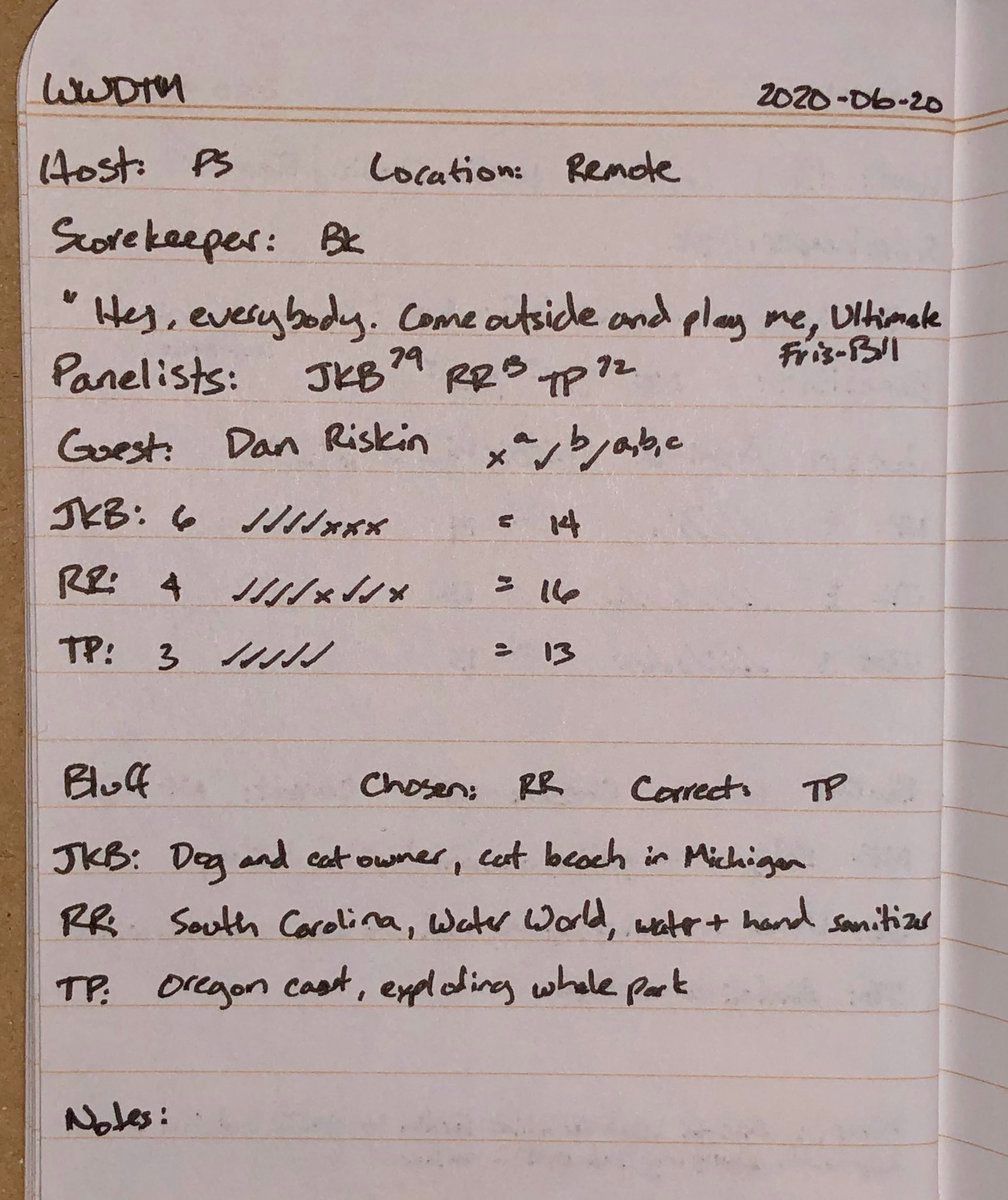 WWDTM 2020-06-20
Host: PS Location: Remote
Scorekeeper: BK
" Hey, everybody. Come outside and play me, Ultimate
Friz-Bill
Panelists: JKB 79 RR 13 TP 72
Guest: Dan Riskin x a ✓ b ✓ a,b,c
JKB: 6 ✓✓✓✓xxx = 14
RR: 4 ✓✓✓✓x✓✓x = 16
TP: 3 ✓✓✓✓✓ = 13
Bluff Chosen: RR Correct: TP
JKB: Dog and cat owner, cat beach in Michigan
RR: South Carolina, Water World, water + hand sanitizer
TP: Oregon coast, exploding whale park
Notes: